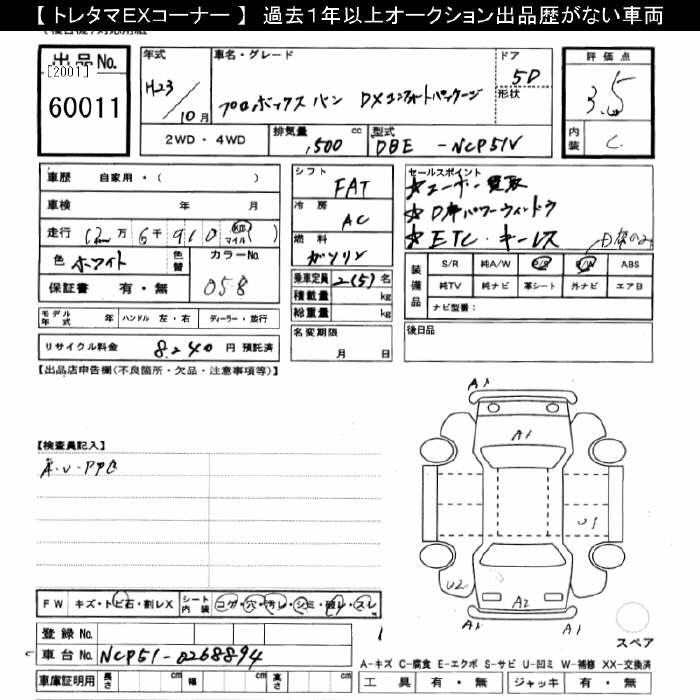 【 トレタマEXコーナー 】 過去1年以上オークション出品歴がない車両
出品No.
[2001]
60011
年式
H23
10月
車名・グレード
プロボックスバン DXコンフォートパッケージ
ドア
5D
形状
評価点
3.5
内装
C
2WD・4WD
排気量
1500 cc
型式
DBE -NCP51V
車歴 自家用・( )
車検 年 月
走行 (12万6千910 km マイル)
色 ホワイト
色替
カラーNo.
058
保証書 有・無
シフト
FAT
冷房
AC
燃料
ガソリン
乗車定員 2(5)名
積載量 kg
総重量 kg
名変期限
月 日
セールスポイント
☆ユーザー買取
☆D席パワーウィンドウ
☆ETC・キーレス
D席のみ
装備品
S/R 純A/W P/S P/W ABS
純TV 純ナビ 革シート 外ナビ エアB
ナビ型番:
後日品
モデル年式 年 ハンドル 左・右 ディーラー・並行
リサイクル料金 8,240 円 預託済
【出品店申告欄(不良箇所・欠品・注意事項等)】
【検査員記入】
A・U・PPC
A1
A1
U1
U2
A2
A1
A1
スペア
FW キズ・トビ石・割レX
シート内装 コゲ・穴・汚レ・シミ・破レ・スレ
登録No.
車台No. NCP51-0268894
車庫証明用 長さ cm 幅 cm 高さ cm
A-キズ C-腐食 E-エクボ S-サビ U-凹ミ W-補修 XX-交換済
工具 有・無 ジャッキ 有・無